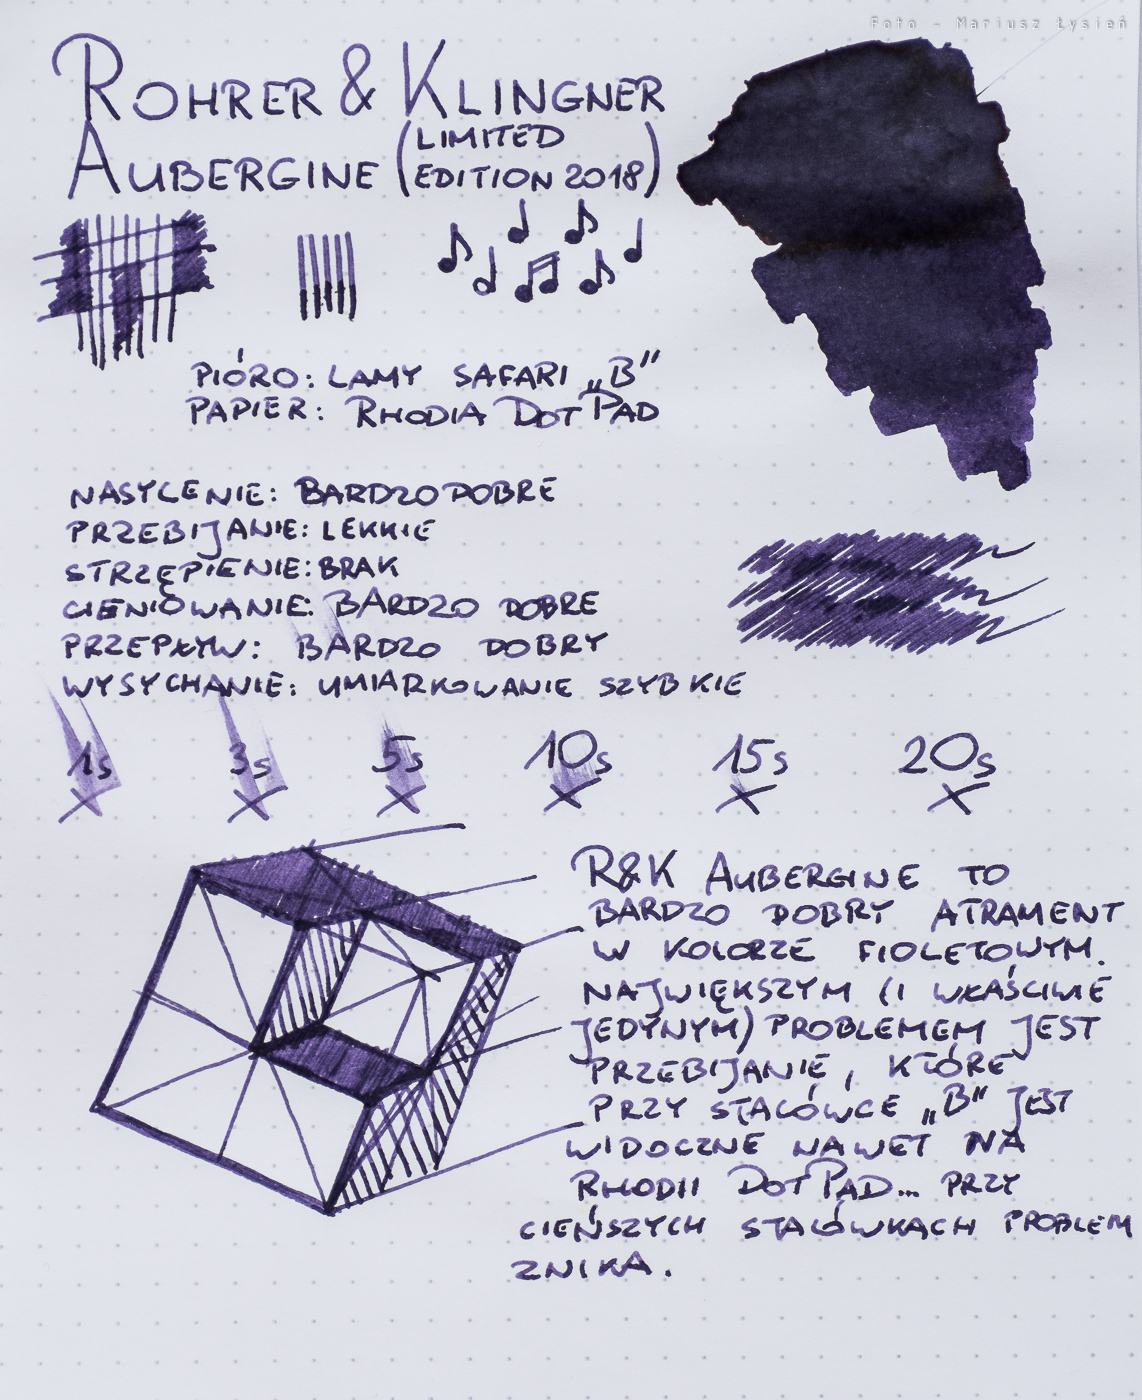 Foto - Mariusz Łysień
ROHRER & KLINGNER
AUBERGINE (LIMITED
EDITION 2018)
PIÓRO: LAMY SAFARI „B”
PAPIER: RHODIA DOT PAD
NASYCENIE: BARDZO DOBRE
PRZEBIJANIE: LEKKIE
STRZĘPIENIE: BRAK
CIENIOWANIE: BARDZO DOBRE
PRZEPŁYW: BARDZO DOBRY
WYSYCHANIE: UMIARKOWANIE SZYBKIE
1s 3s 5s 10s 15s 20s
R&K AUBERGINE TO
BARDZO DOBRY ATRAMENT
W KOLORZE FIOLETOWYM.
NAJWIĘKSZYM (I WŁAŚCIWIE
JEDYNYM) PROBLEMEM JEST
PRZEBIJANIE, KTÓRE
PRZY STALÓWCE „B” JEST
WIDOCZNE NAWET NA
RHODII DOT PAD... PRZY
CIEŃSZYCH STALÓWKACH PROBLEM
ZNIKA.